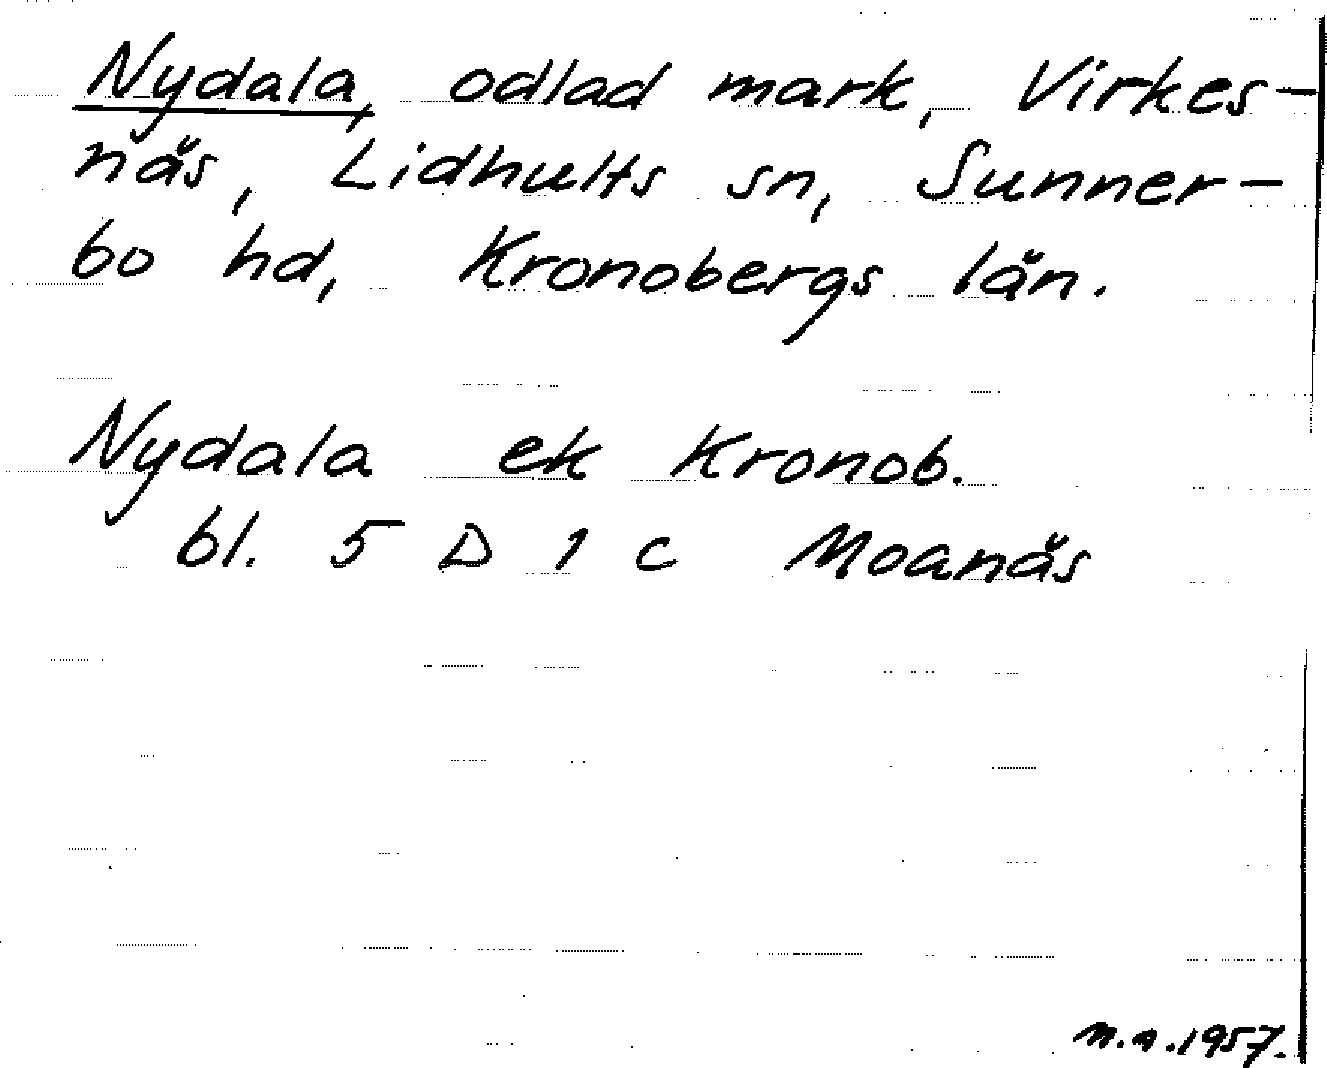 Nydala, odlad mark, Virkes-
näs, Lidhults sn, Sunner-
bo hd, Kronobergs län.
Nydala ek Kronob.
bl. 5 D 1 c Moanäs
n.a.1957.